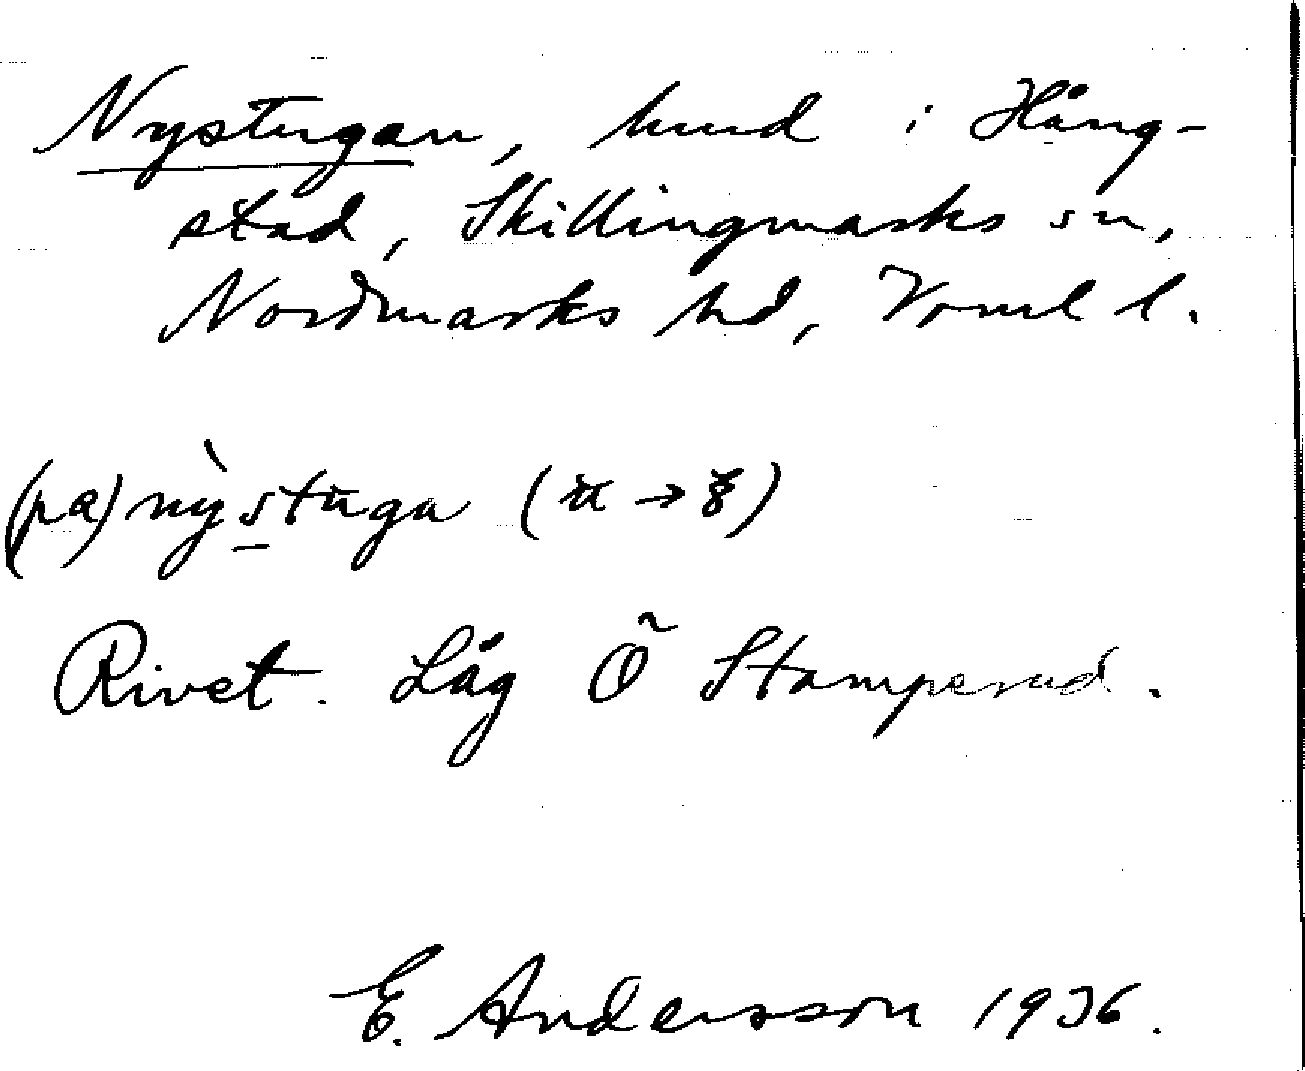 Nystugan, hmd i Häng-
stad, Skillingmarks sn,
Nordmarks hd, Vrml l.
(pa) nỳstuga (u → )
Rivet. Låg Ö Stamperud.
E. Andersson 1936.